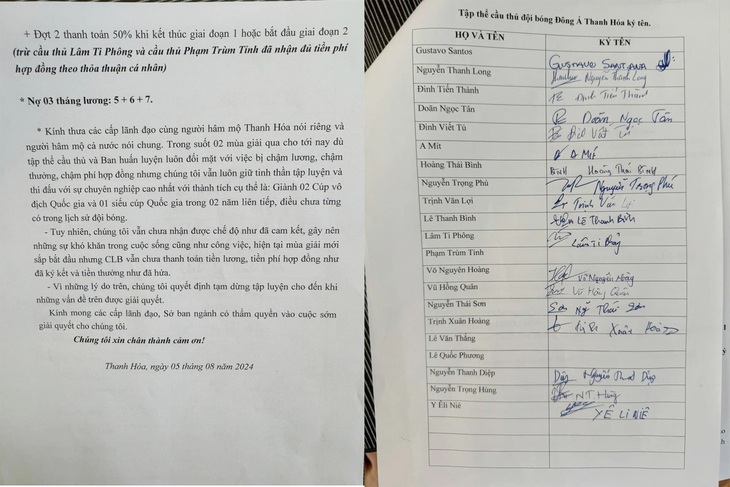 + Đợt 2 thanh toán 50% khi kết thúc giai đoạn 1 hoặc bắt đầu giai đoạn 2
(trừ cầu thủ Lâm Ti Phông và cầu thủ Phạm Trùm Tỉnh đã nhận đủ tiền phí
hợp đồng theo thỏa thuận cá nhân)
* Nợ 03 tháng lương: 5 + 6 + 7.
* Kính thưa các cấp lãnh đạo cùng người hâm mộ Thanh Hóa nói riêng và
người hâm mộ cả nước nói chung. Trong suốt 02 mùa giải qua cho tới nay dù
tập thể cầu thủ và Ban huấn luyện luôn đối mặt với việc bị chậm lương, chậm
thưởng, chậm phí hợp đồng nhưng chúng tôi vẫn luôn giữ tinh thần tập luyện và
thi đấu với sự chuyên nghiệp cao nhất với thành tích cụ thể là: Giành 02 Cúp vô
địch Quốc gia và 01 siêu cúp Quốc gia trong 02 năm liên tiếp, điều chưa từng
có trong lịch sử đội bóng.
- Tuy nhiên, chúng tôi vẫn chưa nhận được chế độ như đã cam kết, gây nên
những sự khó khăn trong cuộc sống cũng như công việc, hiện tại mùa giải mới
sắp bắt đầu nhưng CLB vẫn chưa thanh toán tiền lương, tiền phí hợp đồng như
đã ký kết và tiền thưởng như đã hứa.
- Vì những lý do trên, chúng tôi quyết định tạm dừng tập luyện cho đến khi
những vấn đề trên được giải quyết.
Kính mong các cấp lãnh đạo, Sở ban ngành có thẩm quyền vào cuộc sớm
giải quyết cho chúng tôi.
Chúng tôi xin chân thành cảm ơn!
Thanh Hóa, ngày 05 tháng 08 năm 2024
Tập thể cầu thủ đội bóng Đông Á Thanh Hóa ký tên.
HỌ VÀ TÊN KÝ TÊN
Gustavo Santos GUSTAVO SANTANA
Nguyễn Thanh Long Nguyễn Thanh Long
Đinh Tiến Thành Đinh Tiến Thành
Doãn Ngọc Tân Doãn Ngọc Tân
Đinh Viết Tú Đinh Viết Tú
A Mít A Mít
Hoàng Thái Bình Bình Hoàng Thái Bình
Nguyễn Trọng Phú Nguyễn Trọng Phú
Trịnh Văn Lợi Trịnh Văn Lợi
Lê Thanh Bình Lê Thanh Bình
Lâm Ti Phông Lâm Ti Phông
Phạm Trùm Tỉnh
Võ Nguyên Hoàng Võ Nguyên Hoàng
Vũ Hồng Quân Vũ Hồng Quân
Nguyễn Thái Sơn Sơn Ng Thái Sơn
Trịnh Xuân Hoàng Xuân Hoàng
Lê Văn Thắng
Lê Quốc Phương
Nguyễn Thanh Diệp Diệp Nguyễn Thanh Diệp
Nguyễn Trọng Hùng NT.Hùng
Y Êli Niê Y Ê LI NIÊ